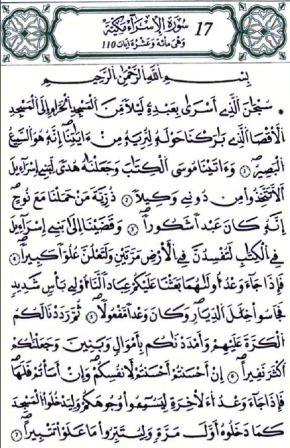 17 سُورَةُ الإِسْرَاءِ مَكِّيَّة
وَهْىَ مِائَة وَعَشَرَةُ ءَايَات 110
بِسْمِ اللَّهِ الرَّحْمَٰنِ الرَّحِيمِ
سُبْحَٰنَ الَّذِى أَسْرَىٰ بِعَبْدِهِۦ لَيْلًا مِّنَ الْمَسْجِدِ الْحَرَامِ إِلَى الْمَسْجِدِ
الْأَقْصَا الَّذِى بَٰرَكْنَا حَوْلَهُۥ لِنُرِيَهُۥ مِنْ ءَايَٰتِنَا إِنَّهُۥ هُوَ السَّمِيعُ
الْبَصِيرُ ١ وَءَاتَيْنَا مُوسَى الْكِتَٰبَ وَجَعَلْنَٰهُ هُدًى لِّبَنِى إِسْرَآءِيلَ
أَلَّا تَتَّخِذُوا مِن دُونِى وَكِيلًا ٢ ذُرِّيَّةَ مَنْ حَمَلْنَا مَعَ نُوحٍ
إِنَّهُۥ كَانَ عَبْدًا شَكُورًا ٣ وَقَضَيْنَا إِلَىٰ بَنِى إِسْرَآءِيلَ
فِى الْكِتَٰبِ لَتُفْسِدُنَّ فِى الْأَرْضِ مَرَّتَيْنِ وَلَتَعْلُنَّ عُلُوًّا كَبِيرًا ٤
فَإِذَا جَآءَ وَعْدُ أُولَىٰهُمَا بَعَثْنَا عَلَيْكُمْ عِبَادًا لَّنَا أُولِى بَأْسٍ شَدِيدٍ
فَجَاسُوا خِلَٰلَ الدِّيَارِ وَكَانَ وَعْدًا مَّفْعُولًا ٥ ثُمَّ رَدَدْنَا لَكُمُ
الْكَرَّةَ عَلَيْهِمْ وَأَمْدَدْنَٰكُم بِأَمْوَٰلٍ وَبَنِينَ وَجَعَلْنَٰكُمْ
أَكْثَرَ نَفِيرًا ٦ إِنْ أَحْسَنتُمْ أَحْسَنتُمْ لِأَنفُسِكُمْ وَإِنْ أَسَأْتُمْ فَلَهَا
فَإِذَا جَآءَ وَعْدُ الْأَخِرَةِ لِيَسُۥٓـُٔوا وُجُوهَكُمْ وَلِيَدْخُلُوا الْمَسْجِدَ
كَمَا دَخَلُوهُ أَوَّلَ مَرَّةٍ وَلِيُتَبِّرُوا مَا عَلَوْا تَتْبِيرًا ٧